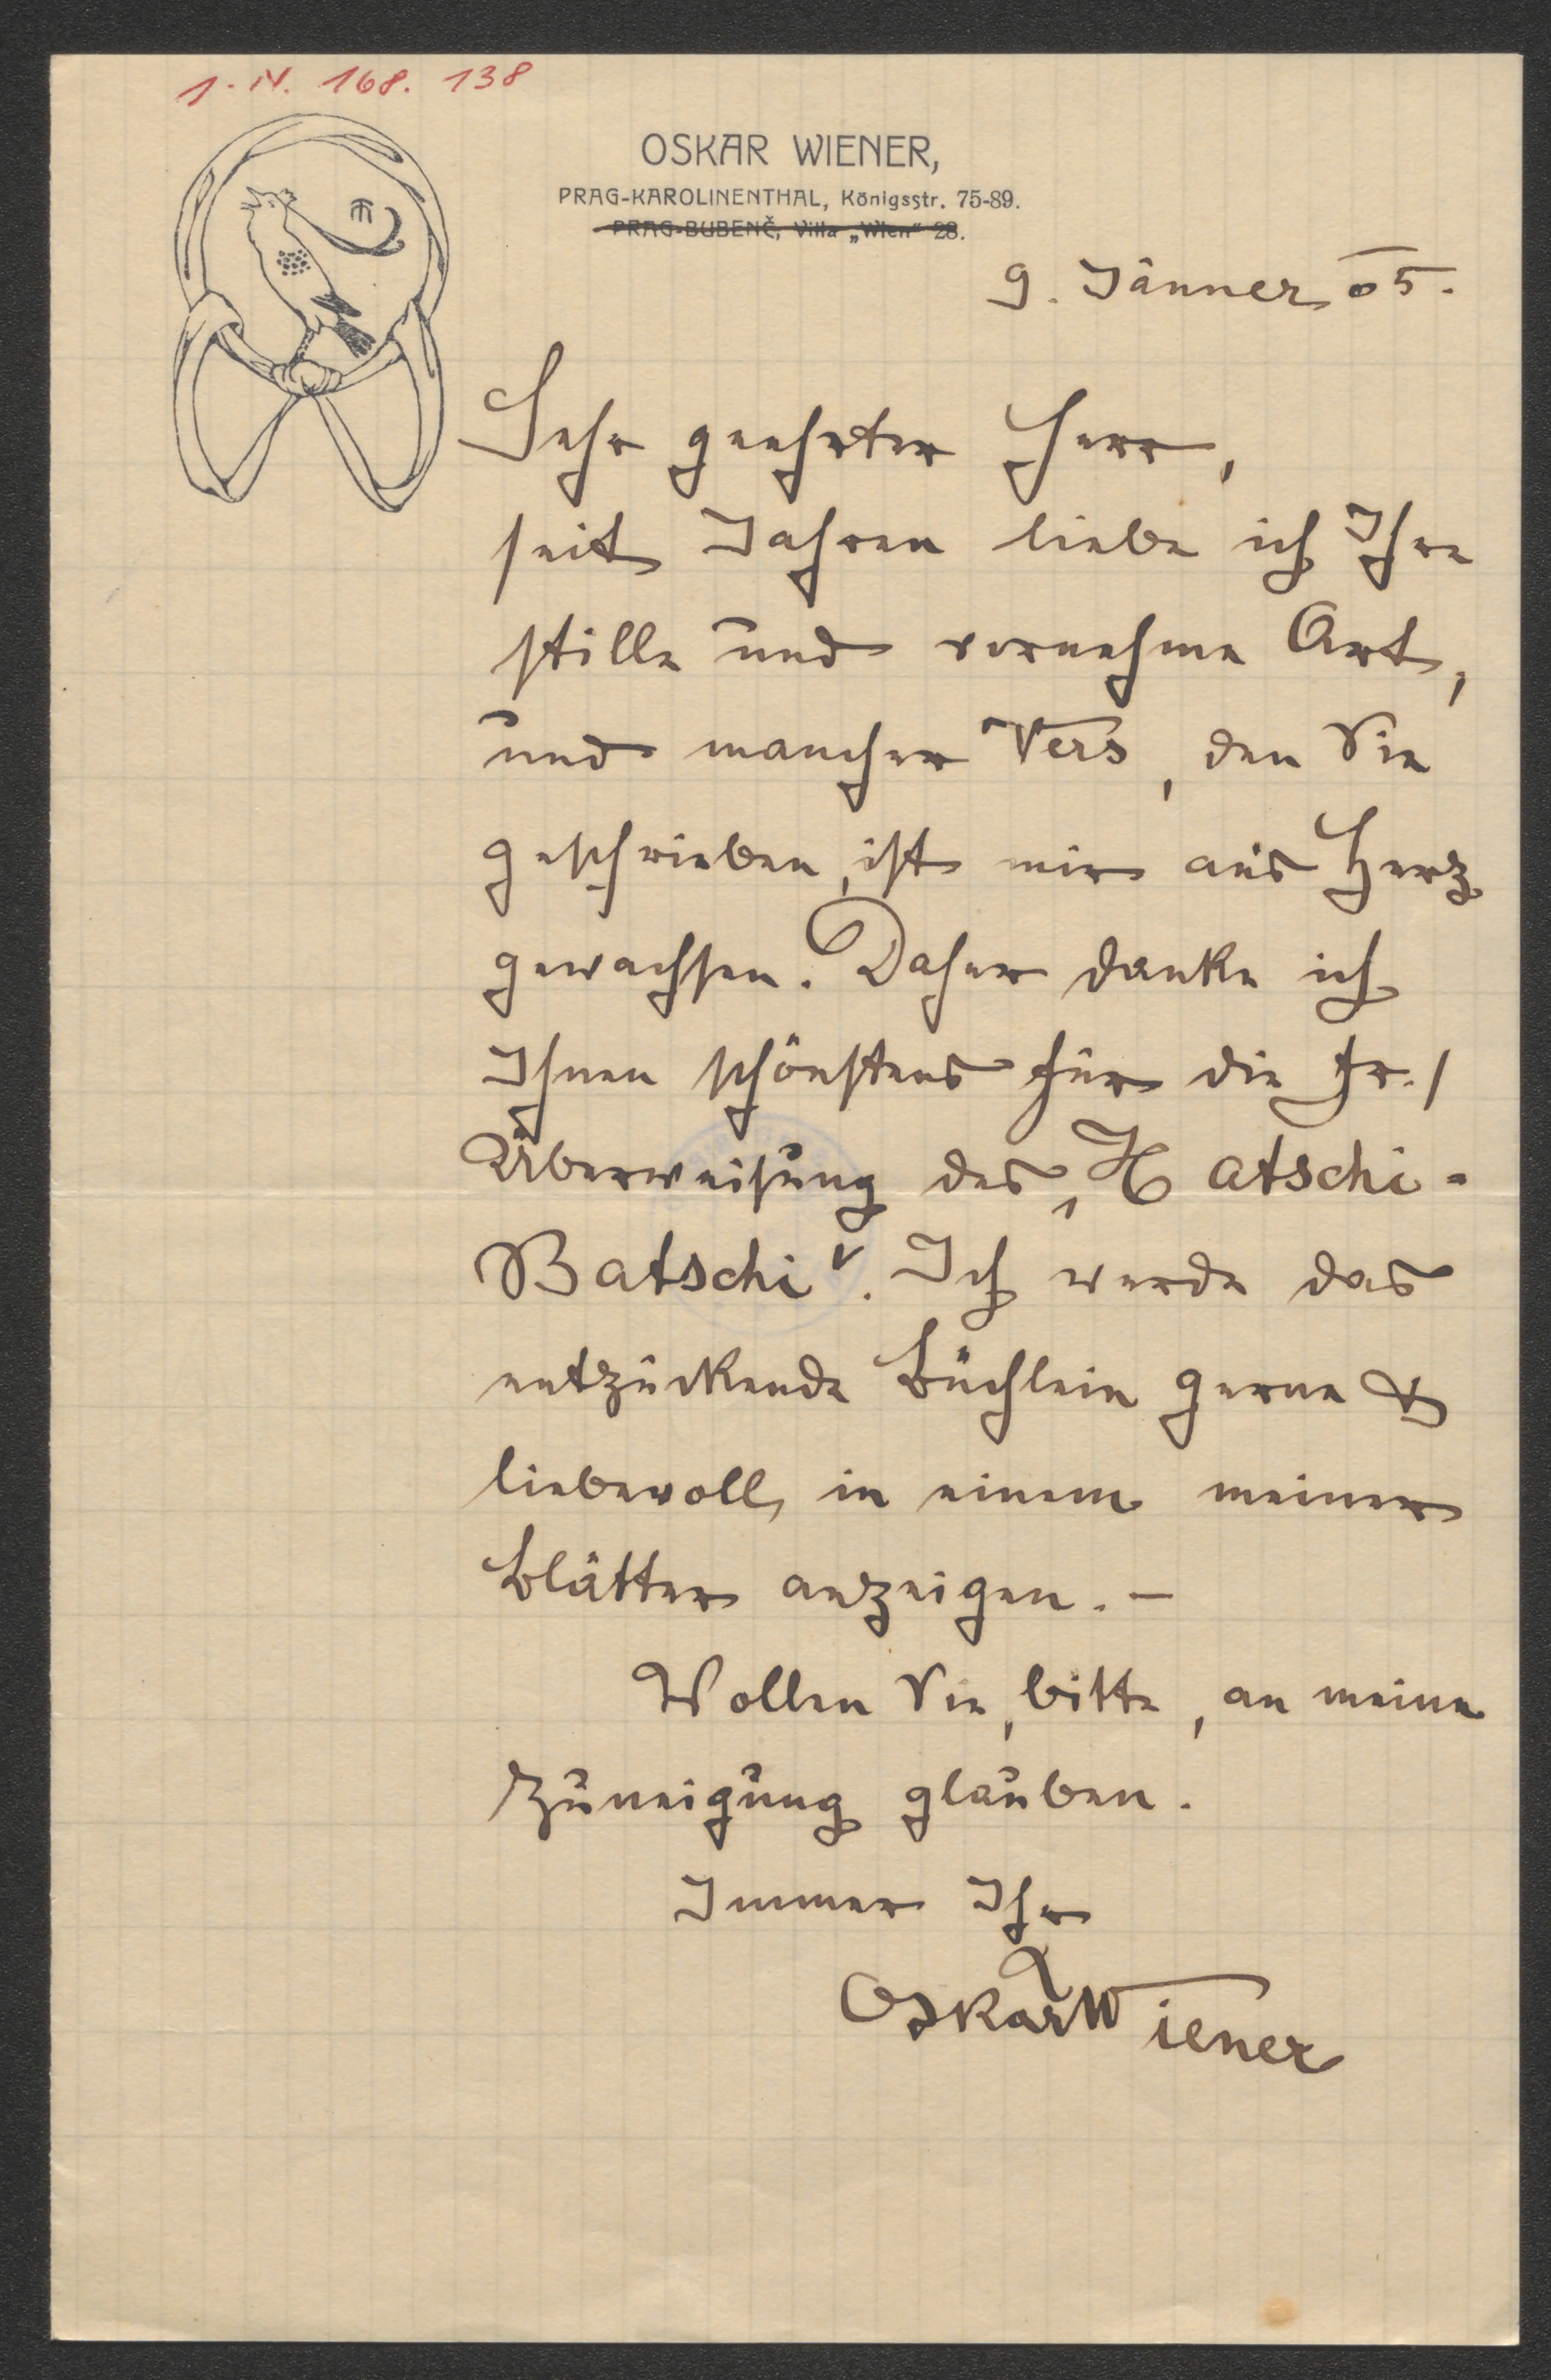 1. N. 168. 138
OSKAR WIENER,
PRAG-KAROLINENTHAL, Königsstr. 75-89.
PRAG-BUBENČ, Villa „Wien" 28.
9. Jänner 05.
Sehr geehrter Herr,
seit Jahren liebe ich Ihre
stille und vornehme Art,
und mancher Vers, den Sie
geschrieben, ist mir ans Herz
gewachsen. Daher danke ich
Ihnen schönstens für die fr./
Überweisung des „Hatschi-
Batschi". Ich werde das
entzückende Büchlein gerne &
liebevoll, in einem meiner
Blätter anzeigen. –
Wollen Sie, bitte, an meine
Zuneigung glauben.
Immer Ihr
Oskar Wiener